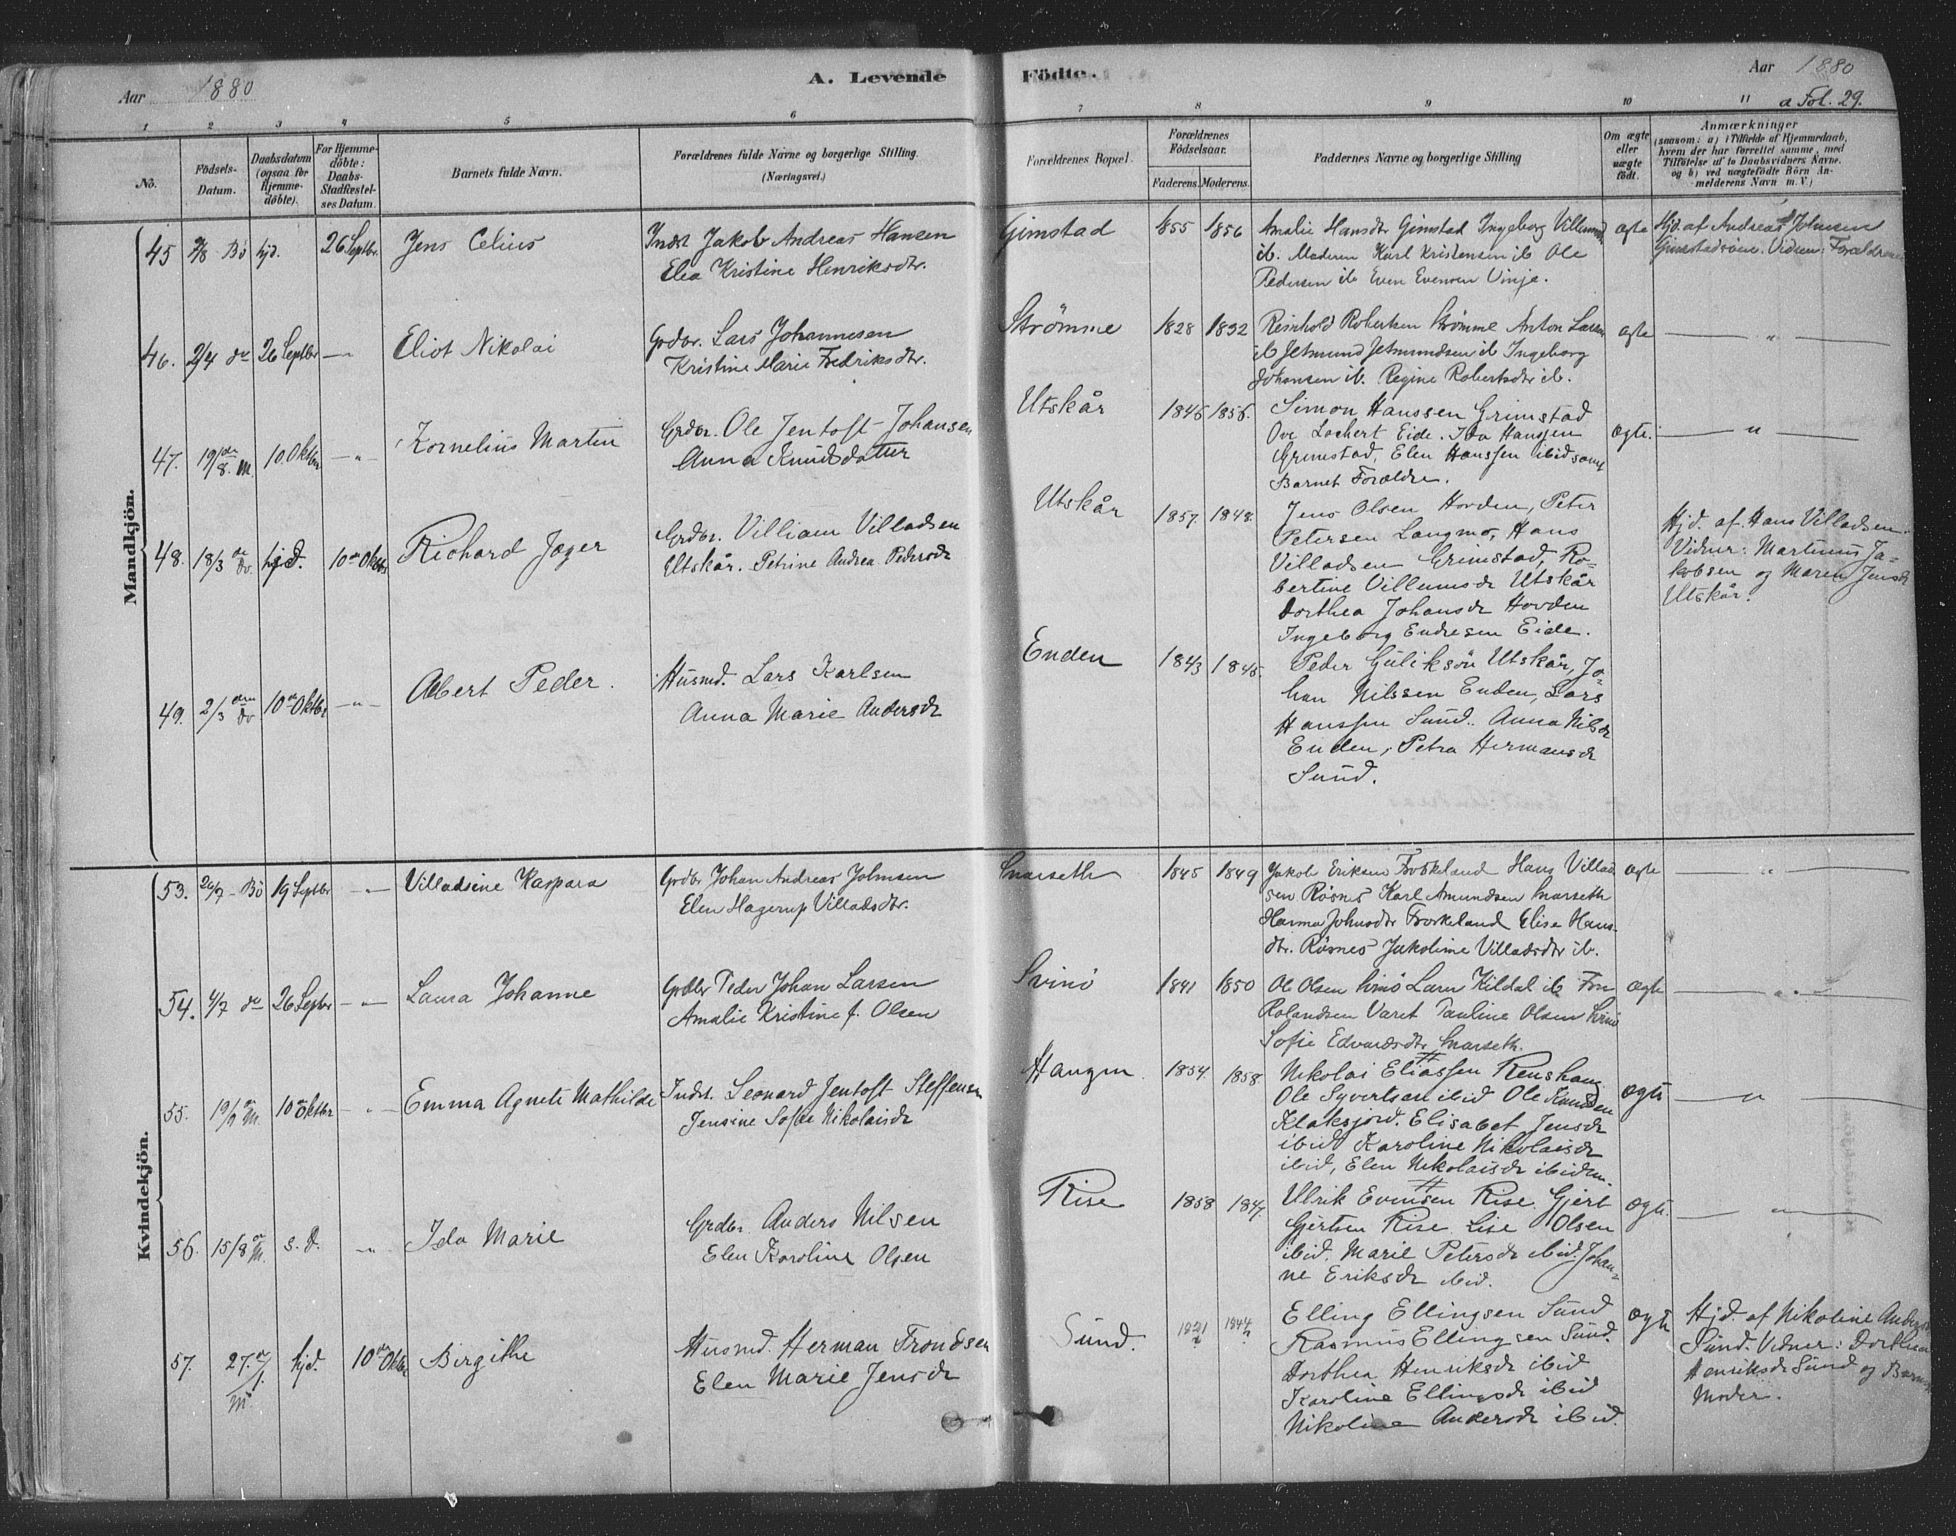 Aar 1880
A. Levende
Födte.
Aar 1880
a Fol. 29.
1 2 3 4 5 6
7 8 9 10 11
No.
Födsels-
Datum.
Daabsdatum
(ogsaa for
Hjemme-
döbte).
For Hjemme-
döbte:
Daabs-
Stadfæstel-
ses Datum.
Barnets fulde Navn.
Forældrenes fulde Navne og borgerlige Stilling.
(Næringsvei.)
Forældrenes Bopæl.
Forældrenes
Födselsaar.
Faderens. Moderens.
Faddernes Navne og borgerlige Stilling
Om ægte
eller
uægte
födt.
Anmærkninger
(saasom: a) i Tilfælde af Hjemmedaab,
hvem der har forrettet samme, med
Tilföielse af to Daabsvidners Navne.
og b) ved uægtefödte Börn An-
melderens Navn m. V.)
Mandkjön.
45 2/8 Bö hjd. 26 Septbr. Jens Celius
Indst Jakob Andreas Hansen
Elea Kristine Henriksdtr.
Gimstad 1855 1856
Amalie Hansdtr Gimstad Ingeborg
ib. Moderen Karl Kristensen ib Ole
Pedersen ib Even Evensen Vinje.
ægte
Hjd. af Andreas Johnsen
Gimstadsöne. Vidner: Forældrene
46. 2/4 do 26 Septbr — Eliot Nikolai
Grdbr. Lars Johannesen
Kristine Marie Fredriksdtr.
Strömme 1828 1832
Reinhold Robertsen Strömme Anton Larsen
ib Jetmund Jetmundsen ib Ingeborg
Johansen ib. Regine Robertsdtr ib.
ægte — " —
47. 19/8. M. 10. Oktbr - " - Kornelius Martin
Grdbr. Ole Jentoft Johansen
Anna Knudsdatter
Utskår 1846 1856.
Simon Hanssen Grimstad
Ove Lockert Eide. Ida Hanssen
Grimstad, Elen Hanssen ibid samt
Barnet Forældre.
ægte. — " —
48. 18/3 hjd. 10de Oktbr Richard Jæger
Grdbr. Villiam Villadsen
Utskår. Petrine Andrea Pedersdr
Utskår 1857. 1848.
Jens Olsen Hovden, Peter
Petersen Langmo, Hans
Villadsen Grimstad, Ro-
bertine Villumsdr Utskår
Dorthea Johansdr Hovden
Ingeborg Endresen Eide.
Hjd. af Hans Villadsen.
Vidner: Martinus Ja-
kobsen og Maren Jensdr
Utskår.
49. 2/3 10de Oktbr - " - Albert Peder.
Husmd. Lars Karlsen
Anna Marie Andersdr
Enden 1843 1845.
Peder Guliksön Utskår, Jo-
han Nilssen Enden, Lars
Hanssen Sund. Anna Nilsdr
Enden, Petra Hermansdr
Sund.
Kvindekjön.
53. 26/7 - Bö 19 Septbr - " - Villadsine Kaspara
Grdbr Johan Andreas Johnsen
Elen Hagerup Villadsdtr.
Snarseth 1845 1849
Jakob Eriksen Froskeland Hans Villad
sen Rösnes Karl Amundsen Snarseth
Hanna Johnsdtr Froskeland Elise Hans-
dtr. Rösnes Jakoline Villadsdtr ib.
ægte — " —
54. 4/7 do 26 Septbr - " - Laura Johanne
Grdbr Peder Johan Larsen
Amalie Kristine f. Olsen
Svinö 1841 1850
Ole Olsen Svinö Laru Kildal ib
Rolandsen Varet Pauline Olsen Svinö
Sofie Edvardsdtr Snarseth.
ægte — " —
55. 19/9 M. 10de Oktbr - " - Emma Agnete Mathilde
Indst. Leonard Jentoft Steffensen
Jensine Sofie Nikolaisdr
Haugen 1854. 1858.
Nikolai Eliassen Renshaug
Ole Syvertsen ibid Ole Knudsen
Klaksjord. Elisabet Jensdr
ibid Karoline Nikolaisdr
ibid, Elen Nikolaisdr ibidem.
ægte — " —
56. 15/8 M. s. D. " Ida Marie
Grdbr. Anders Nilsen
Elen Karoline Olsen
Rise 1858 1847.
Ulrik Evensen Rise Gjert
Gjertsen Rise Lise Olsen
ibid. Marie Petersdr ibid. Johan-
ne Eriksdr ibid.
ægte. — " —
57. 27/1. M. hjd. 10de Oktbr Birgithe
Husmd. Herman Trondsen
Elen Marie Jensdr
Sund. 1821 1844
Elling Ellingsen Sund
Rasmus Ellingsen Sund.
Dorthea Henriksdr ibid
Karoline Ellingsdr ibid
Nikoline Andersdr ibid.
ægte
Hjd. af Nikoline Andersdr
Sund. Vidner: Dorthea
Henriksdr Sund og Barnets
Moder.